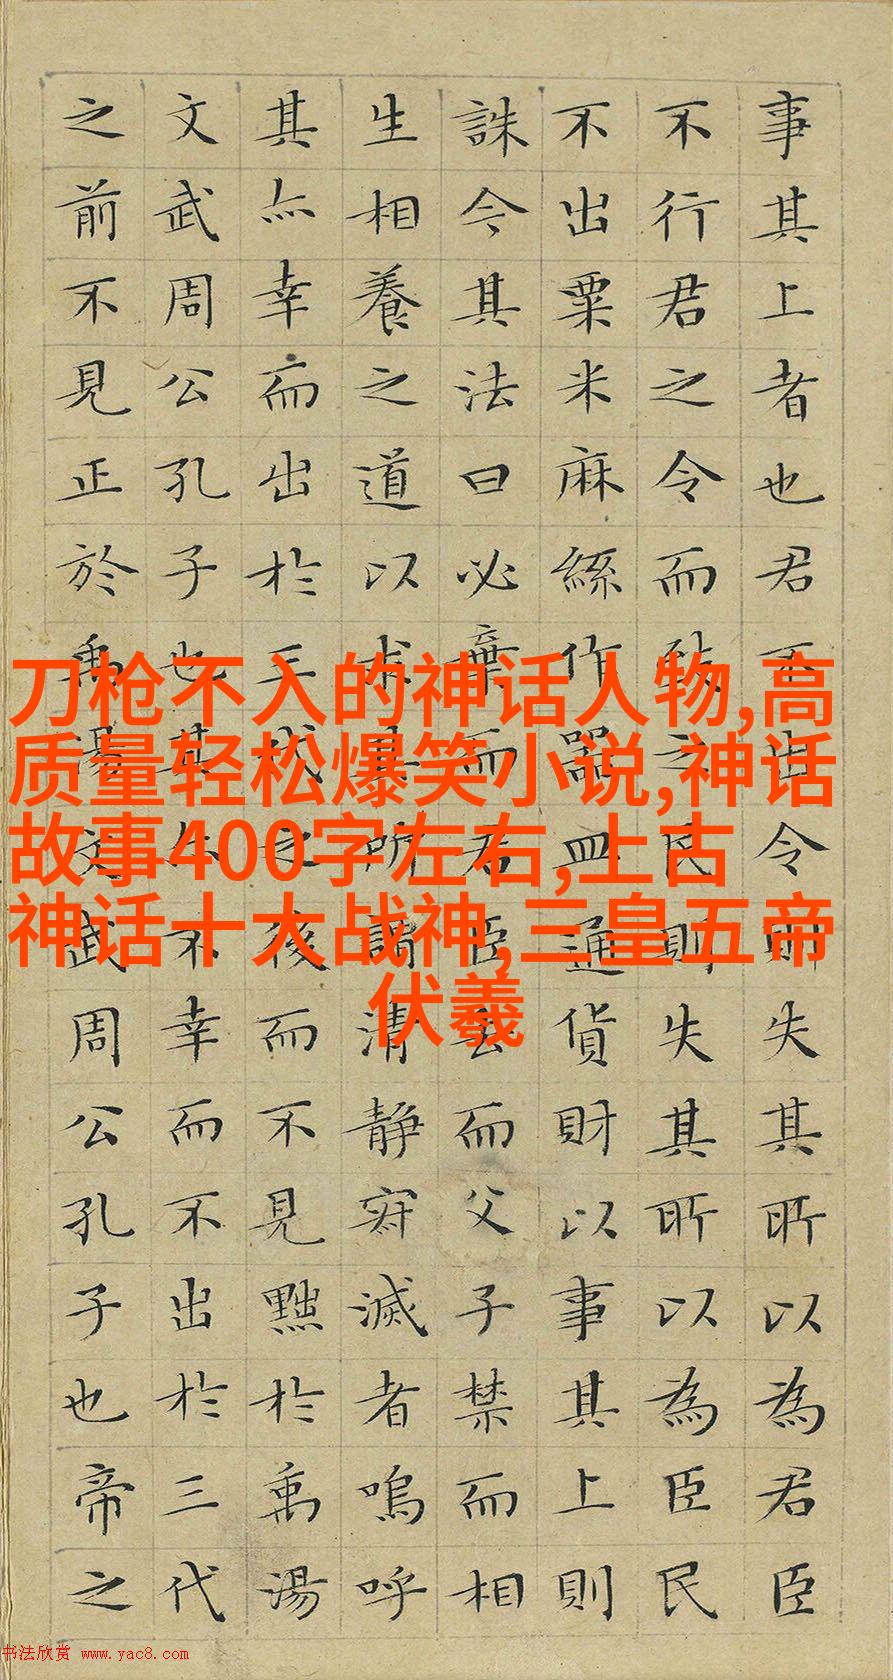 事其上者也君不出令則失其所以為君臣
不行君之令而致之民則失其所以為臣民
不出粟米麻絲作器皿通貨財以事其上則
誅今其法曰必棄而君臣去而父子禁而相
生相養之道以求其所謂清静寂滅者嗚呼
其亦幸而出於三代之後而不見黜於禹湯
文武周公孔子也其亦不幸而不出於三代
之前不見正於禹湯文武周公孔子也帝之
刀枪不入的神话人物,高
质量轻松爆笑小说,神话
故事400字左右,上古
神话十大战神,三皇五帝
伏羲
书法欣赏 www.yac8.com